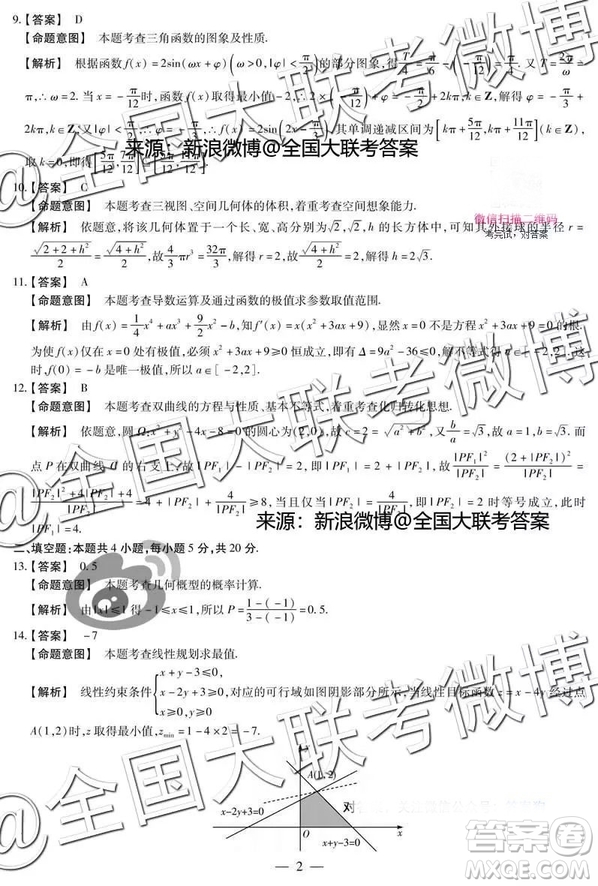 9.【答案】 D
【命题意图】 本题考查三角函数的图象及性质.
【解析】 根据函数 f(x)=2sin(ωx+φ)(ω>0,|φ|<π/2)的部分图象,得T/4=π/6-(-π/12),T=π. 又T=2π/ω=
π,∴ω=2. 当 x=-π/12时,函数 f(x)取得最小值-2,∴2×(-π/12)+φ=-π/2+2kπ,k∈Z,解得 φ=-π/3+
2kπ,k∈Z,又|φ|<π/2,∴φ=-π/3,∴f(x)=2sin(2x-π/3),其单调递减区间为[kπ+5π/12,kπ+11π/12](k∈Z),
取 k=0,即得[5π/12,7π/12]
来源：新浪微博@全国大联考答案
10.【答案】 C
【命题意图】 本题考查三视图、空间几何体的体积,着重考查空间想象能力.
微信扫描二维码
考完试，对答案
【解析】 依题意,将该几何体可拓展为一个长、宽、高分别为√2,√2,h 的长方体中,可知其外接球的半径 r=
√(2+2+h²)/2=√(4+h²)/2,故4/3πr³=32π/3,解得 r=2,故√(4+h²)/2=2,解得 h=2√3.
11.【答案】 A
【命题意图】 本题考查导数运算及通过函数的极值求参数取值范围.
【解析】 由 f(x)=1/4x⁴+ax³+9/2x²-b,知f′(x)=x(x²+3ax+9),显然 x=0 不是方程 x²+3ax+9=0 的根.
为使 f(x)仅在 x=0 处有极值,必须 x²+3ax+9≥0 恒成立,即有 Δ=9a²-36≤0,解不等式得 a∈[-2,2]. 这
时,f(0)=-b 是唯一极值,所以 a∈[-2,2].
12.【答案】 B
【命题意图】 本题考查双曲线的方程与性质、基本不等式,着重考查化归转化思想.
【解析】 依题意,圆Q:x²+y²-4x-8=0 的圆心为(2,0),故 c=2=√(a²+b²),又b/a=√3,故 a=1,b=√3. 而
点 P 在双曲线 C 的右支上,故|PF₁|-|PF₂|=2,即|PF₁|=|PF₂|+2,故|PF₁|²/|PF₂|=(2+|PF₂|)²/|PF₂|=
(|PF₂|²+4|PF₂|+4)/|PF₂|=4+|PF₂|+4/|PF₂|≥8,当且仅当|PF₂|=4/|PF₂|,即|PF₂|=2 时等号成立,此时
|PF₁|=4.
来源：新浪微博@全国大联考答案
二、填空题:本题共 4 小题,每小题 5 分,共 20 分.
13.【答案】 0.5
【命题意图】 本题考查几何概型的概率计算.
【解析】 由|x|≤1 得-1≤x≤1,所以 P=(1-(-1))/(3-(-1))=0.5.
14.【答案】 -7
【命题意图】 本题考查线性规划求最值.
【解析】 线性约束条件{x+y-3≤0, x-2y+3≥0, 对应的可行域如图阴影部分所示,当线性目标函数 z=x-4y 经过点
A(1,2)时,z 取得最小值,z_min=1-4×2=-7.
A(1,2)
x-2y+3=0
对
O
x
x+y-3=0
— 2 —
@全国大联考微博
答案圈
MXQE.COM